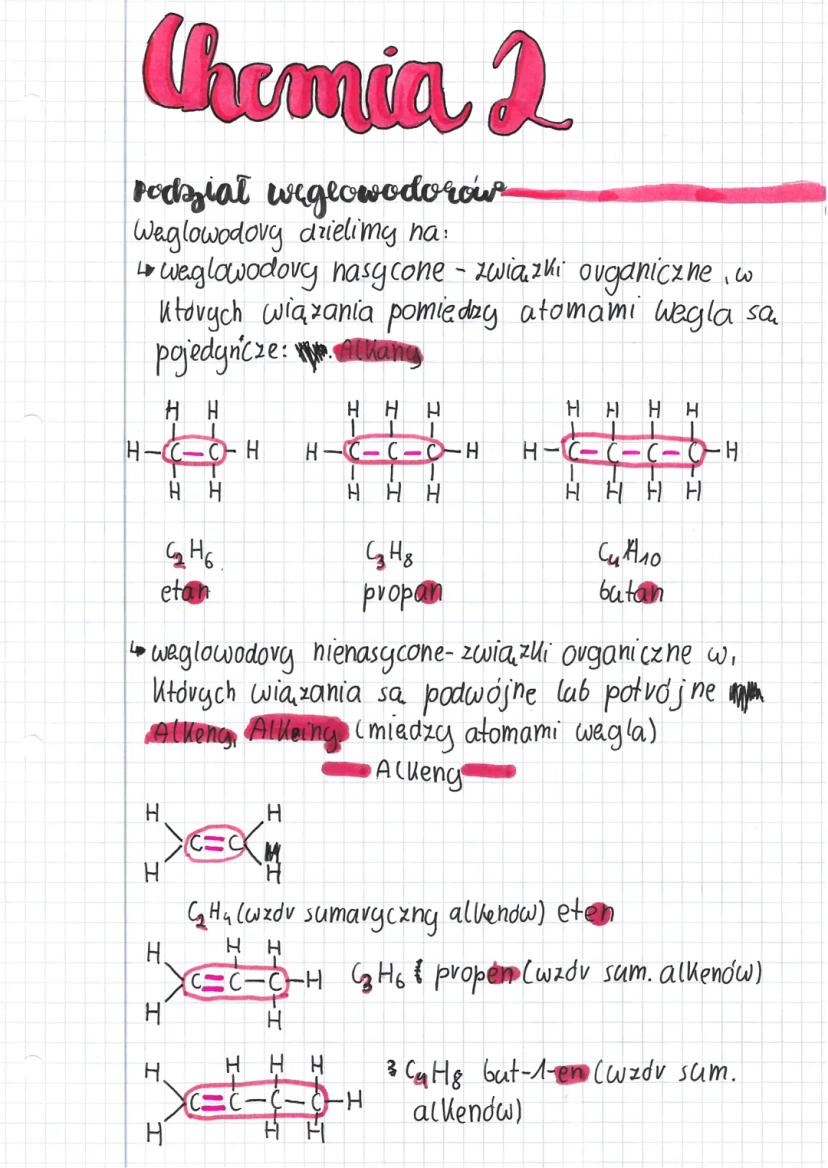 Chemia 2
Podział węglowodorów
Węglowodory dzielimy na:
↳ węglowodory nasycone - związki organiczne, w
których wiązania pomiędzy atomami węgla są
pojedyńcze: Alkany
H H H H H H H H H
H-C-C-H H-C-C-C-H H-C-C-C-C-H
H H H H H H H H H
C2H6 C3H8 C4H10
etan propan butan
↳ węglowodory nienasycone - związki organiczne w,
których wiązania są podwójne lub potrójne
Alkeny, Alkiny. (między atomami węgla)
Alkeny
H H
C=C
H H
C2H4 (wzór sumaryczny alkenów) eten
H H H
C=C-C-H C3H6 propen (wzór sum. alkenów)
H H
H H H H
C=C-C-C-H C4H8 but-1-en (wzór sum.
H H H alkenów)